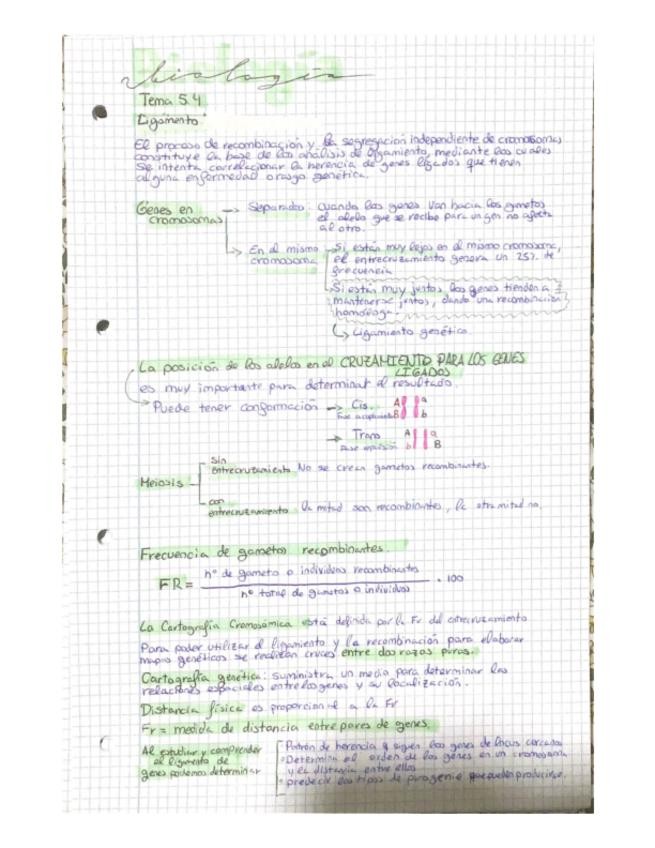 biología
Tema 5.4
Ligamento
El proceso de recombinación y la segregación independiente de cromosomas
constituye la base de los análisis de ligamiento, mediante los cuales
se intenta correlacionar la herencia de genes ligados que tienen
alguna enfermedad o rasgo genético.
Genes en cromosomas
Separados: cuando los genes van hacia los gametos
el alelo que se recibe para un gen no afecta
al otro.
En el mismo cromosoma
Si están muy lejos en el mismo cromosoma,
el entrecruzamiento genera un 25% de
frecuencia
Si están muy juntos, los genes tienden a
mantenerse juntos, dando una recombinación
homóloga.
Ligamiento genético
La posición de los alelos en el CRUZAMIENTO PARA LOS GENES
LIGADOS
es muy importante para determinar el resultado.
Puede tener conformación → Cis. A a
B b
→ Trans A a
b B
Meiosis
sin
entrecruzamiento No se crean gametos recombinantes.
con
entrecruzamiento la mitad son recombinantes, la otra mitad no.
Frecuencia de gametos recombinantes.
nº de gameto o individuos recombinantes
FR= · 100
nº total de gametos o individuos
La Cartografía Cromosomica está definida por la Fr del entrecruzamiento
Para poder utilizar el ligamiento y la recombinación para elaborar
mapas genéticos se realizan cruces entre dos razas puras.
Cartografía genética: suministra un medio para determinar las
relaciones espaciales entre los genes y su localización.
Distancia física es proporcional a la Fr
Fr = medida de distancia entre pares de genes.
Al estudiar y comprender
el ligamento de
genes podemos determinar
Patrón de herencia q siguen los genes de locus cercados
Determina el orden de los genes en un cromosoma
y la distancia entre ellos
predecir los tipos de progenie que pueden producirse.